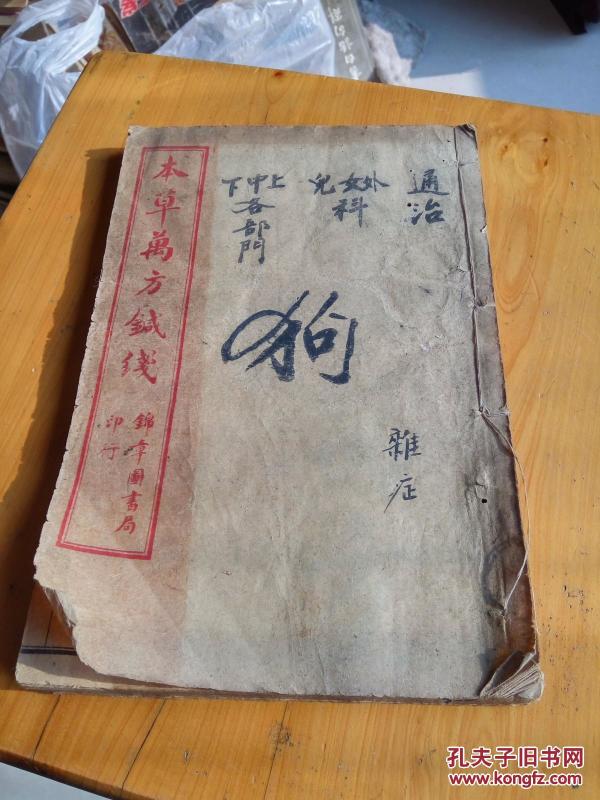 本草萬方鍼线
錦章圖書局
印行
通治
外女兒
科
上中下
各部門
狗
雜症
孔夫子旧书网
www.kongfz.com